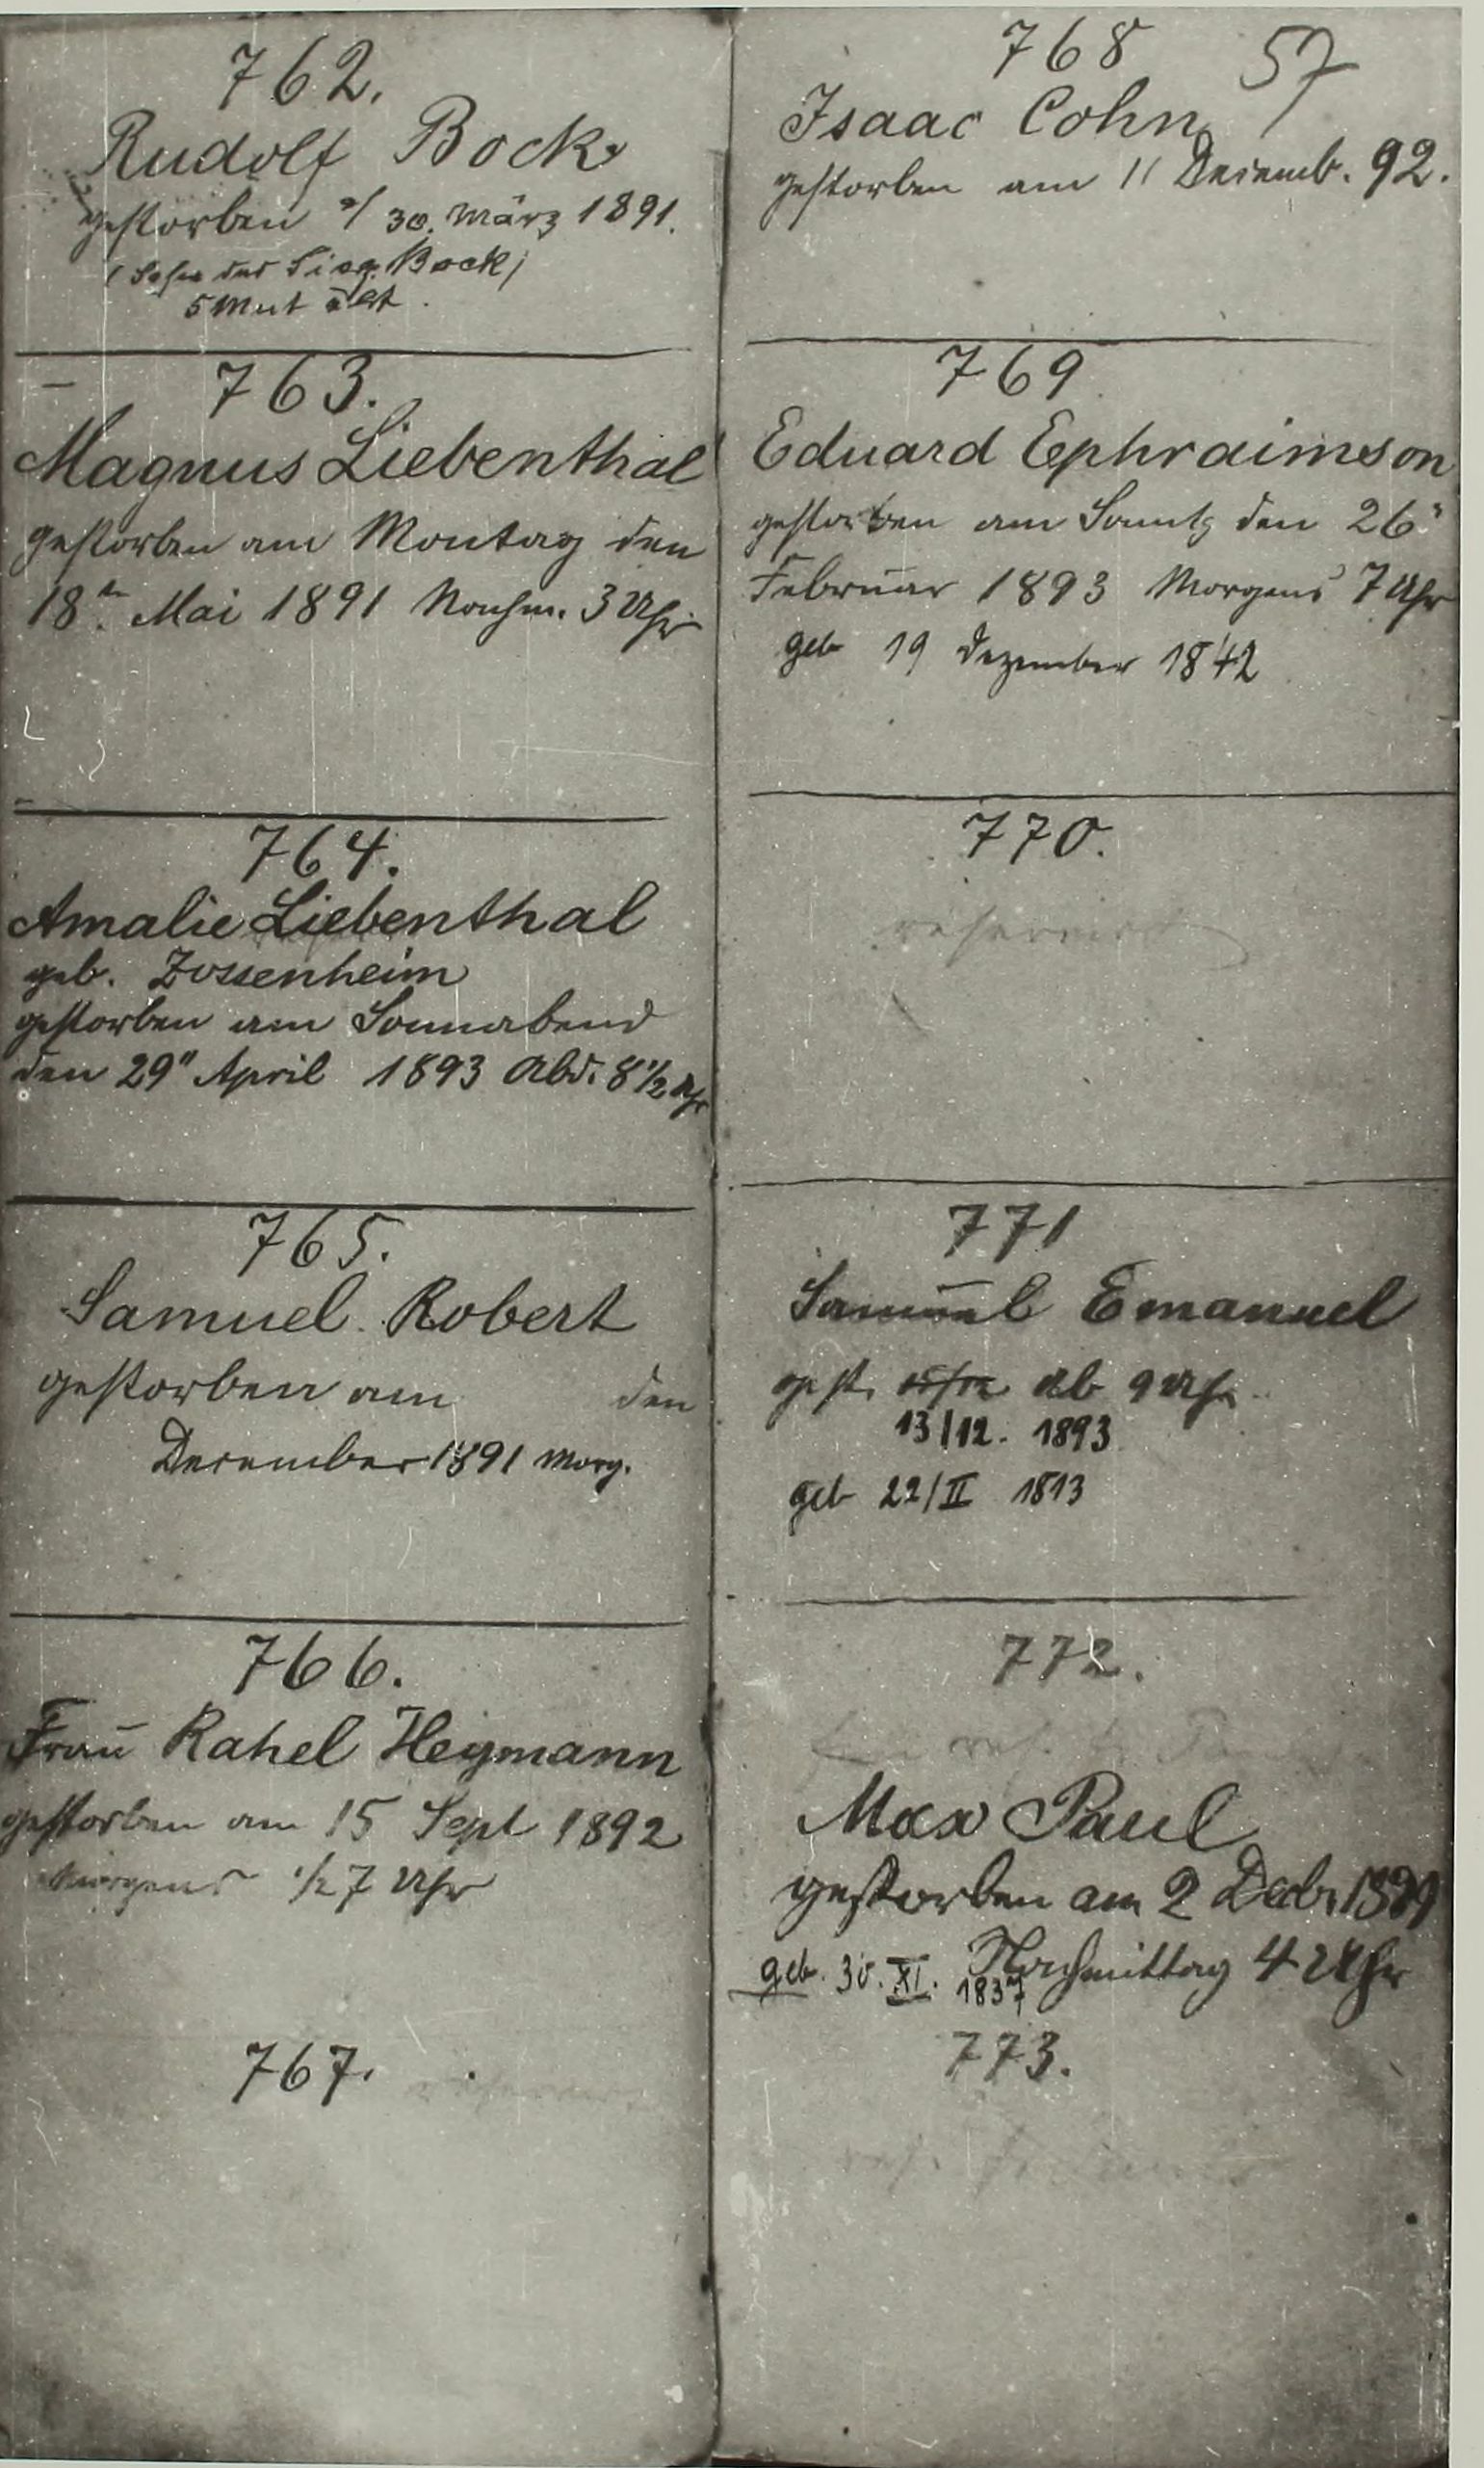 762.
Rudolf Bock
gestorben a/ 30. März 1891.
(Sohn des Sieg. Bock)
5 Mnt alt.
763.
Magnus Liebenthal
gestorben am Montag den
18tn. Mai 1891 Nachm. 3 Uhr
764.
Amalie Liebenthal
geb. Zossenheim
gestorben am Sonnabend
den 29" April 1893 Abd. 8 1/2 Uhr
765.
Samuel Robert
gestorben am den
December 1891 Morg.
766.
Frau Rahel Heymann
gestorben am 15 Sept 1892
Morgens 1/2 7 Uhr
767.
57
768
Isaac Cohn
gestorben am 11 Decemb. 92.
769
Eduard Ephraimson
gestorben am Sonntg den 26"
Februar 1893 Morgens 7 Uhr
geb 19 Dezember 1842
770.
reservirt
771
Samuel Emanuel
gest. Ab 9 Uhr
13/12. 1893
geb 22/II 1813
772.
Max Paul
gestorben am 2 Decbr
Nachmittag 4 Uhr
geb. 30. XI. 1837
773.